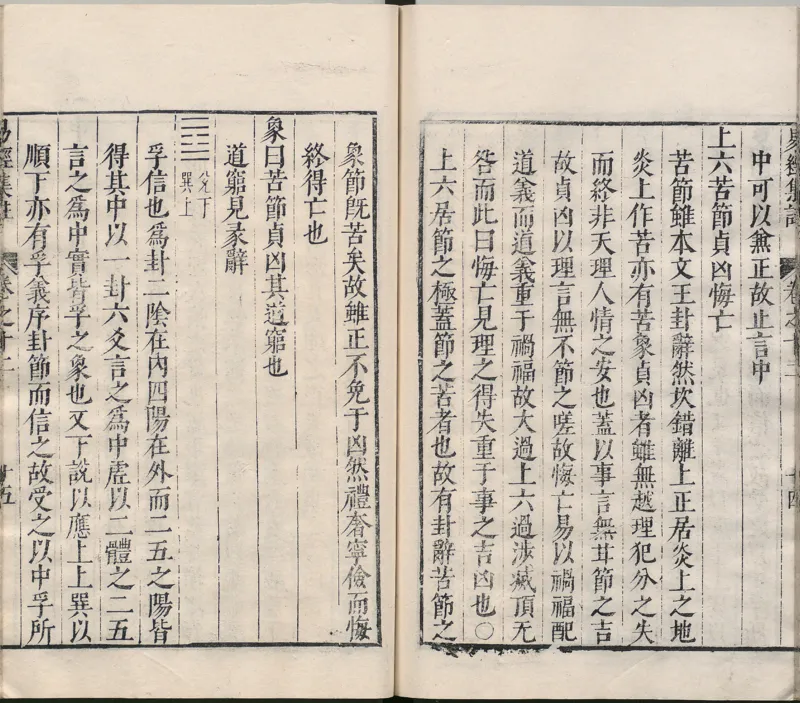 易經集註 卷之十二 十四
中可以兼正故止言中
上六苦節貞凶悔亡
苦節雖本文王卦辭然坎錯離上正居炎上之地
炎上作苦亦有苦象貞凶者雖無越理犯分之失
而終非天理人情之安也蓋以事言無甘節之吉
故貞凶以理言無不節之嗟故悔亡易以禍福配
道義而道義重于禍福故大過上六過涉滅頂无
咎而此曰悔亡見理之得失重于事之吉凶也○
上六居節之極蓋節之苦者也故有卦辭苦節之
象節既苦矣故雖正不免于凶然禮奢寧儉而悔
終得亡也
象曰苦節貞凶其道窮也
道窮見彖辭
兌下
巽上
孚信也為卦二陰在內四陽在外而二五之陽皆
得其中以一卦六爻言之為中虛以二體之二五
言之為中實皆孚之象也又下說以應上上巽以
順下亦有孚義序卦節而信之故受之以中孚所
易經集註 卷之十二 十五